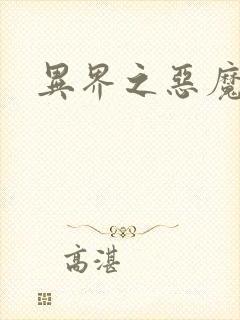 異界之惡魔
高湛